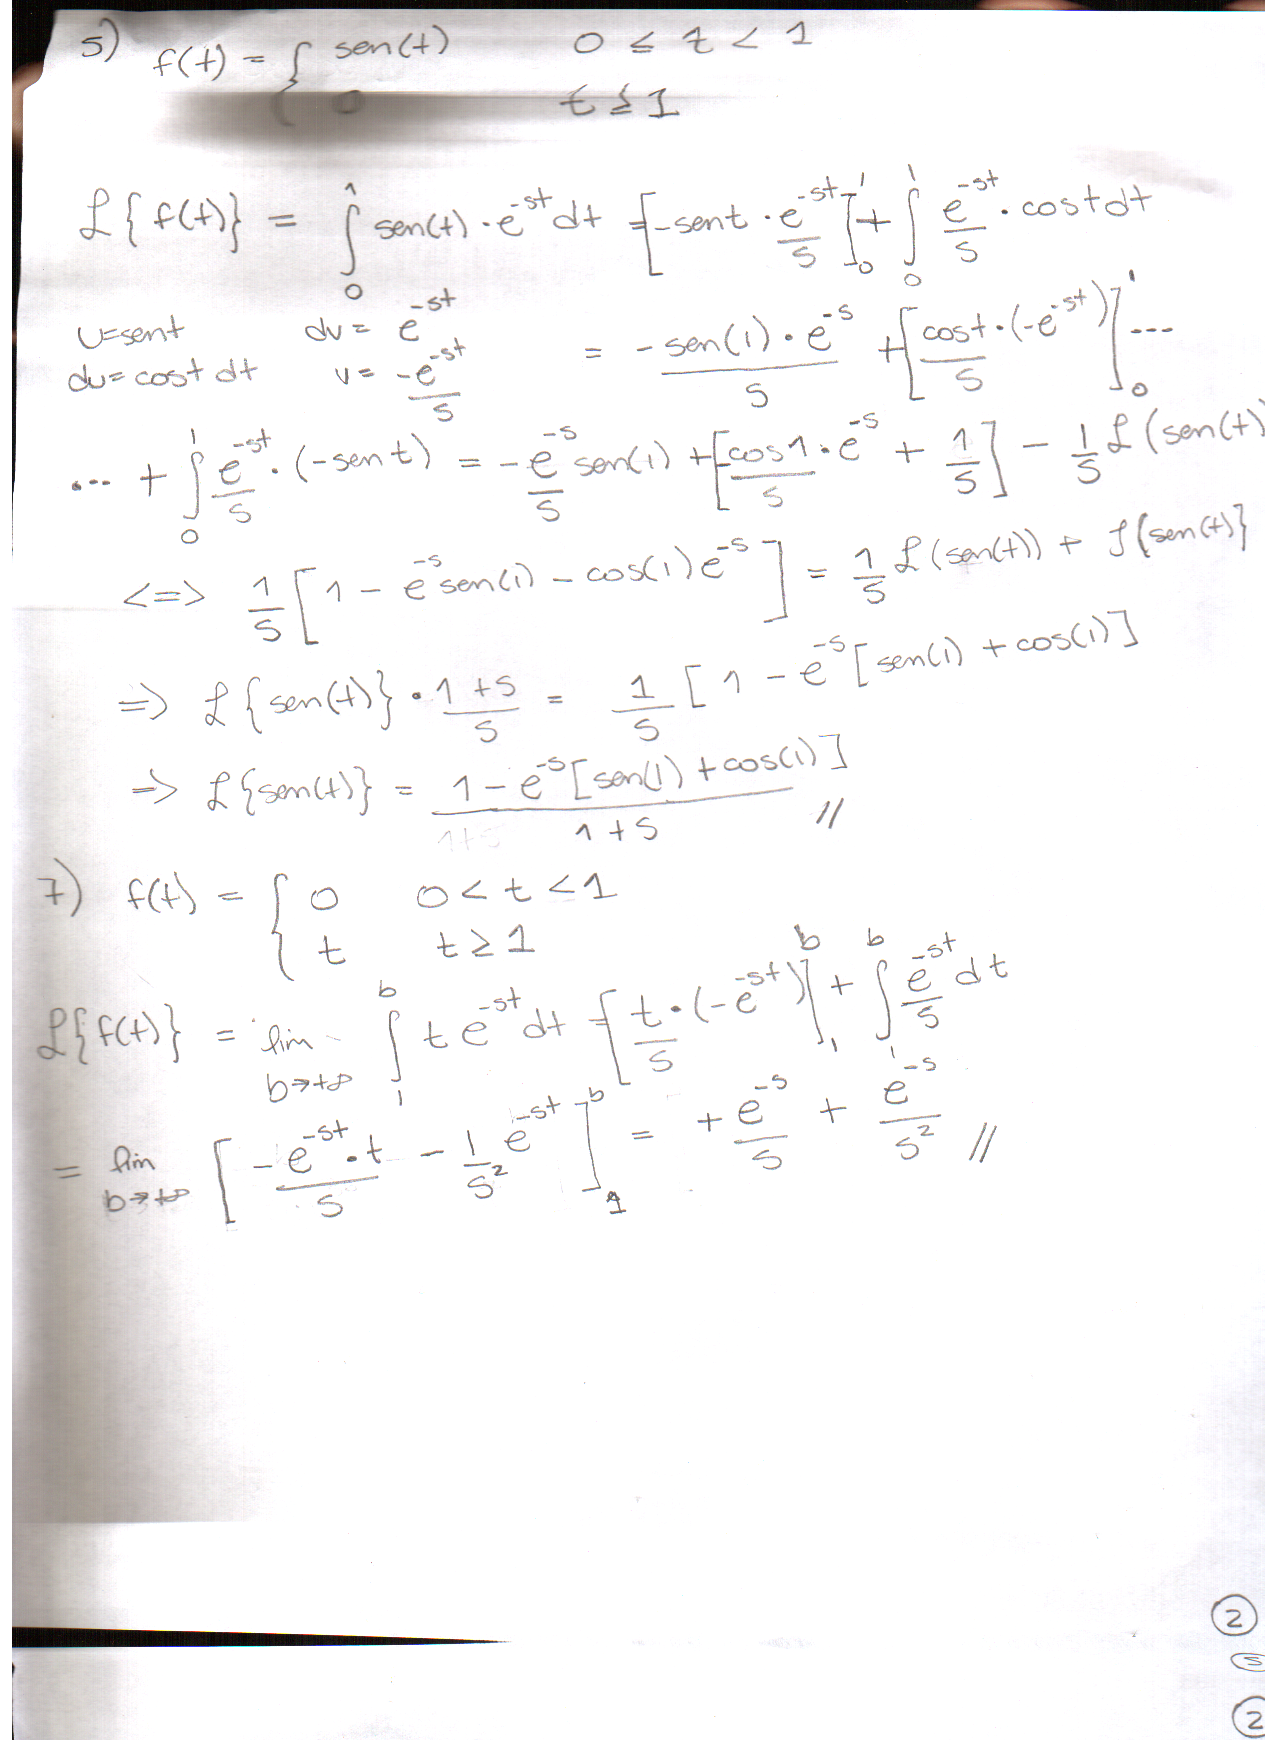 5) f(t) = { sen(t) 0 ≤ t < 1
0 t ≤ 1
ℒ{f(t)} = ∫₀¹ sen(t)·e^{-st} dt = [-sent · e^{-st}/s]₀¹ + ∫₀¹ e^{-st}/s · cost dt
U=sent dv= e^{-st}
du= cost dt v= -e^{-st}/s
= -sen(1)·e^{-s}/s + [cost·(-e^{-st})/s]₀¹ ...
... + ∫₀¹ e^{-st}/s · (-sent) = -e^{-s}/s sen(1) + [-cos1·e^{-s}/s + 1/s] - 1/s ℒ(sen(t)
<=> 1/s [1 - e^{-s} sen(1) - cos(1) e^{-s}] = 1/s ℒ(sen(t)) + ℒ{sen(t)}
=> ℒ{sen(t)} · 1+s/s = 1/s [1 - e^{-s} [sen(1) + cos(1)]
=> ℒ{sen(t)} = 1 - e^{-s} [sen(1) + cos(1)] / 1+s //
7) f(t) = { 0 0 < t < 1
t t ≥ 1
ℒ{f(t)} = lim b→+∞ ∫₁ᵇ t e^{-st} dt = [t·(-e^{-st})/s]₁ᵇ + ∫₁ᵇ e^{-st}/s dt
= lim b→+∞ [-e^{-st}·t/s - 1/s² e^{-st}]₁ᵇ = + e^{-s}/s + e^{-s}/s² //
2
5
2